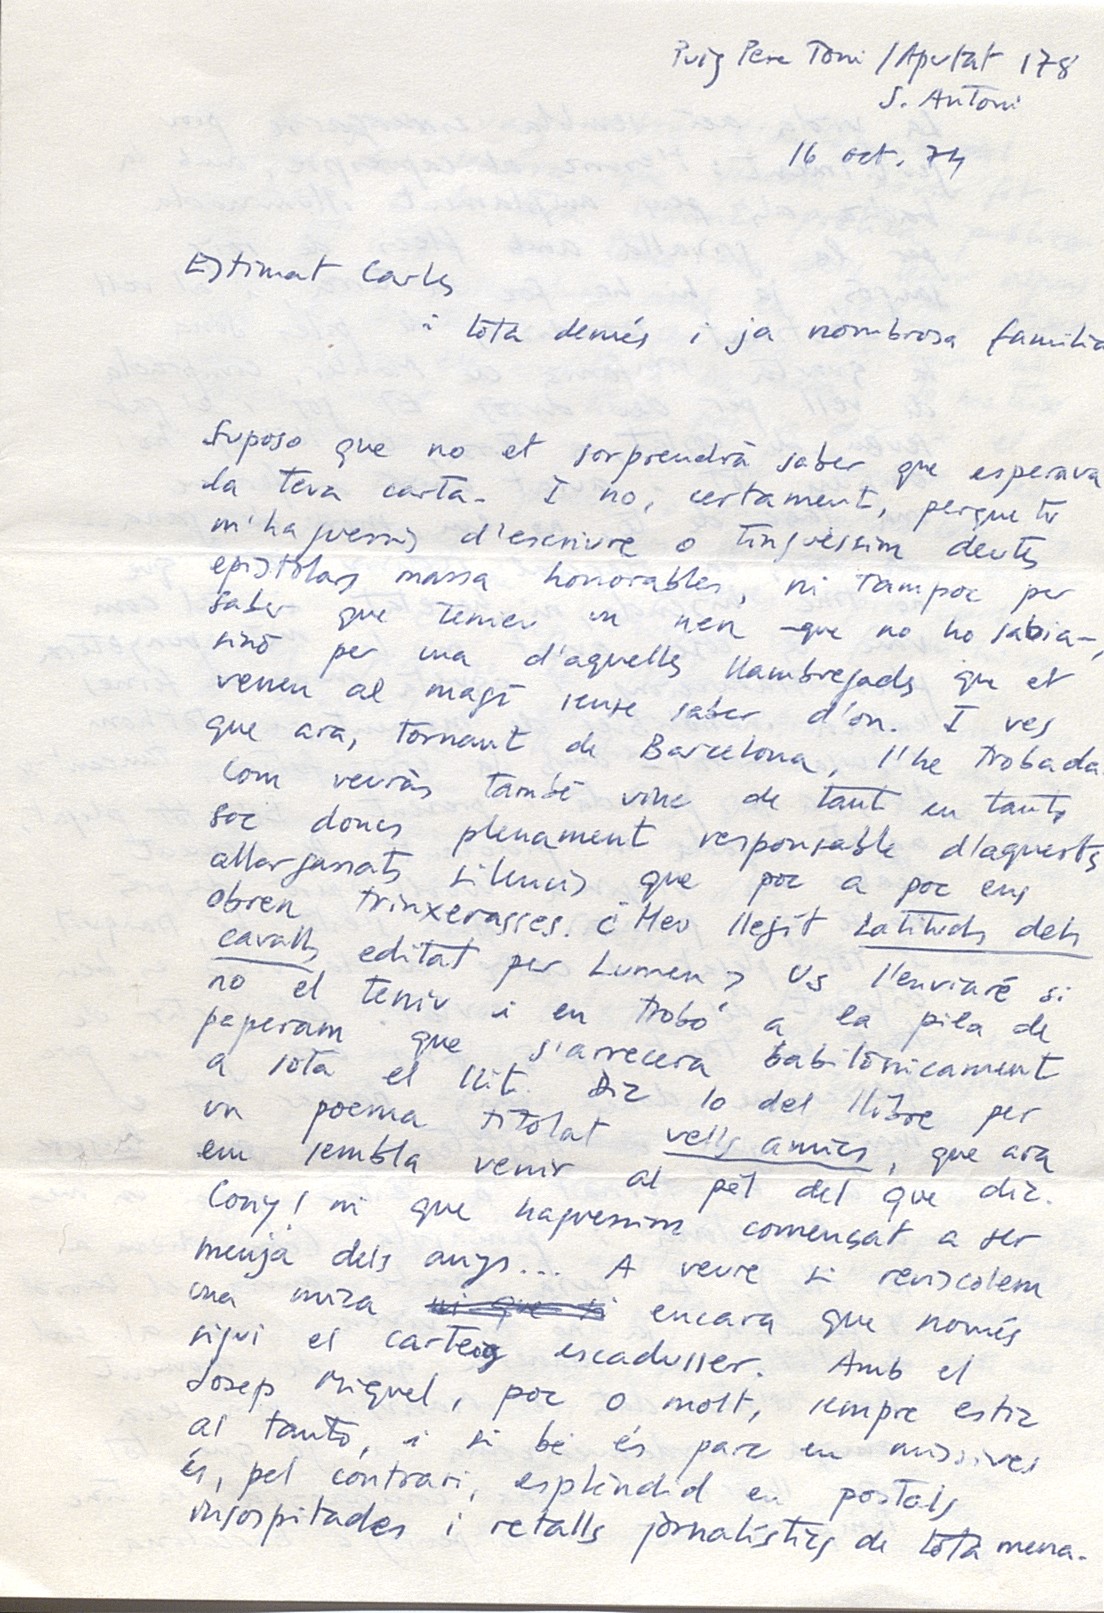 Puig Pere Toni / Apartat 178
S. Antoni
16 oct. 74
Estimat Carles
i tota demés i ja nombrosa familia
Suposo que no et sorprendrà saber que esperava
la teva carta. I no, certament, perque tu
m'haguessis d'escriure o tinguéssim deutes
epistolars massa honorables, ni tampoc per
saber que tenieu un nen -que no ho sabia-,
sinó per una d'aquelles llambregades que et
venen al magí sense saber d'on. I ves
que ara, tornant de Barcelona, l'he trobada.
Com veuràs també vinc de tant en tant,
soc doncs plenament responsable d'aquests
allargassats silencis que poc a poc ens
obren trinxerasses. ¿Heu llegit Latituds dels
cavalls editat per Lumen? Us l'enviaré si
no el teniu i en trobo a la pila de
paperam que s'arrecera babilònicament
a sota el llit. Dic lo del llibre per
un poema titolat vells amics, que ara
em sembla venir al pèl del que dic.
Cony! ni que haguessim començat a ser
menja dels anys... A veure si reviscolem
una mica encara que només
sigui el carteig escadusser. Amb el
Josep Miquel, poc o molt, sempre estic
al tanto, i si bé és parc en missives
és, pel contrari, esplèndid en postals
insospitades i retalls jornalístics de tota mena.